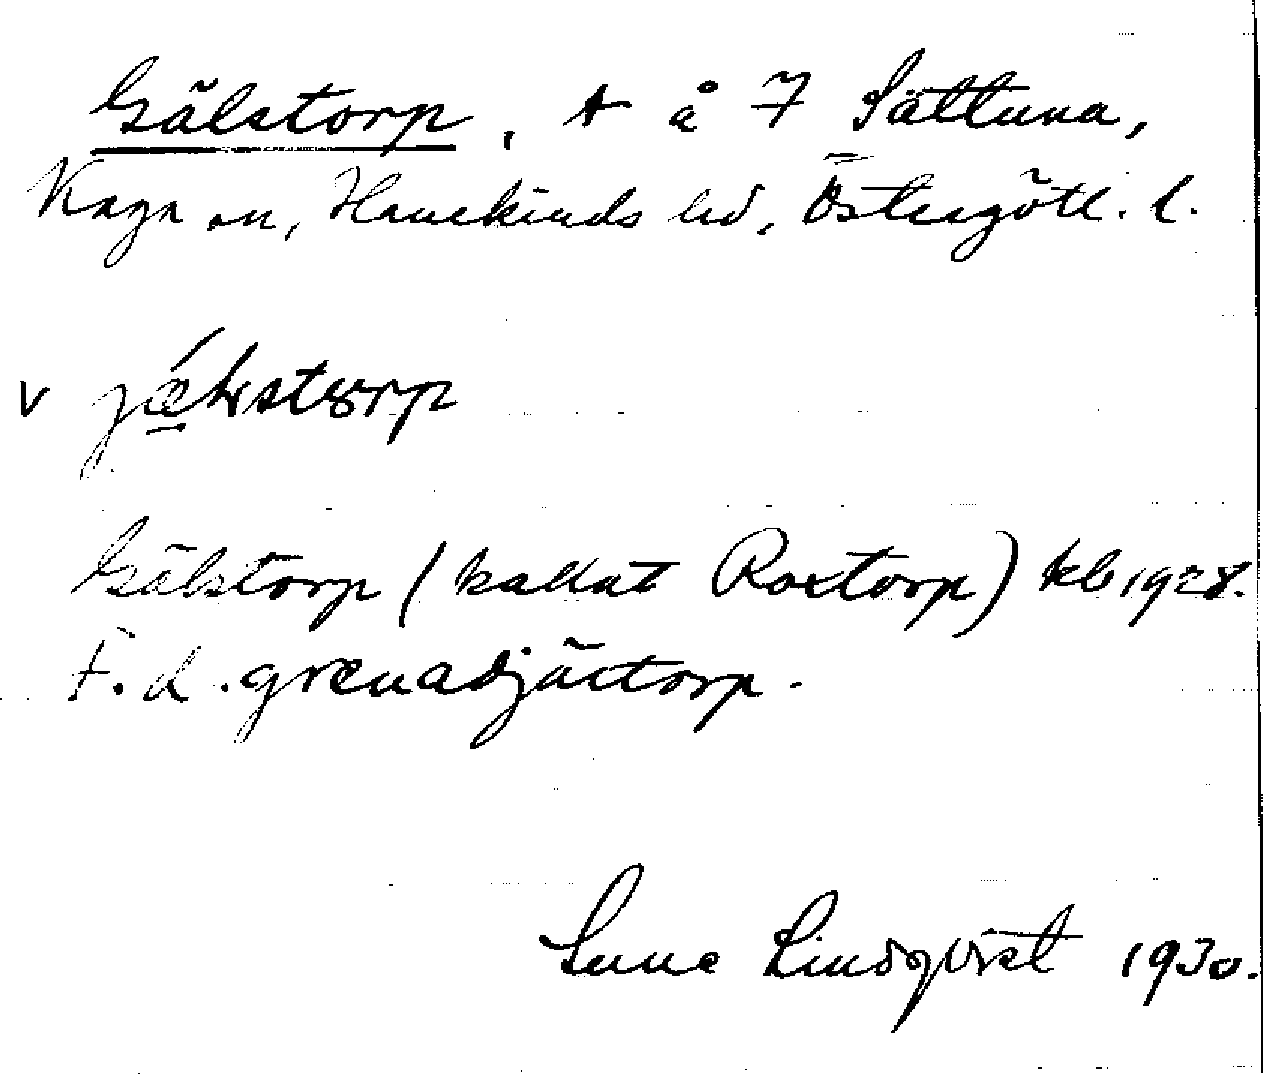 Gälstorp, t å 7 Sättuna,
Kaga sn, Hanekinds hd, Östergötl. l.
v
Gälstorp (kallat Roxtorp) kb 1928.
F. d. grenadjärtorp.
Sune Lindqvist 1930.